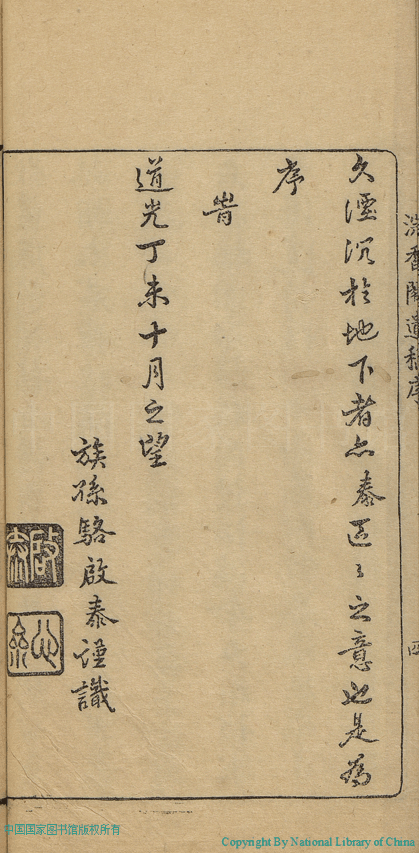 久湮沉於地下者亦泰區〻之意也是為
序
旹
道光丁未十月之望
族孫駱啟泰謹識
啟泰
遺稿序
四
中国国家图书馆版权所有
Copyright By National Library of China